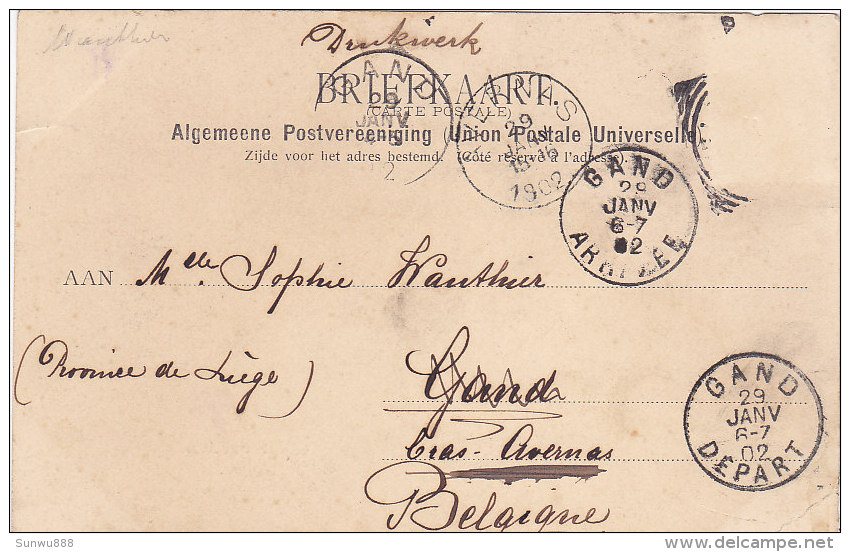 Wanthier
Drukwerk
BRIEFKAART.
(CARTE POSTALE)
Algemeene Postvereeniging (Union Postale Universelle)
Zijde voor het adres bestemd. (Côté réservé à l'adresse).
GAND
29
JANV
2
AVERNAS
29
JANV
1902
GAND
29
JANV
6-7
02
ARRIVEE
AAN Melle. Sophie Wanthier
(Province de Liège)
Gand
Cras-Avernas
Belgique
GAND
29
JANV
6-7
02
DEPART
Sunwu888
delcampe.net